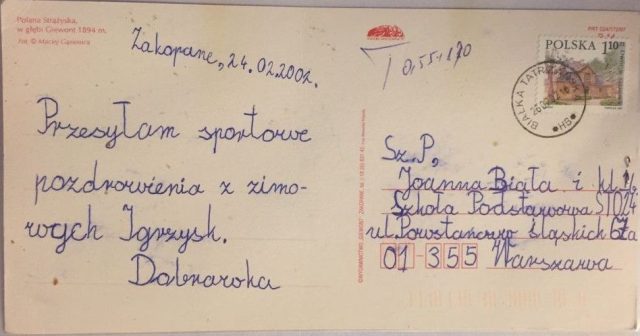 Polana Strążyska,
w głębi Giewont 1894 m.
Zakopane, 24.02.2002.
Przesyłam sportowe
pozdrowienia z zimo-
wych Igrzysk.
Dobnaroka
T 0,55-1,70
POLSKA 1,10
BIAŁKA TATRZAŃSKA
26.02.02
Sz.P,
Joanna Biała i kl.
Szkoła Podstawowa
ul. Powstańców Śląskich 67a
01-355 Warszawa